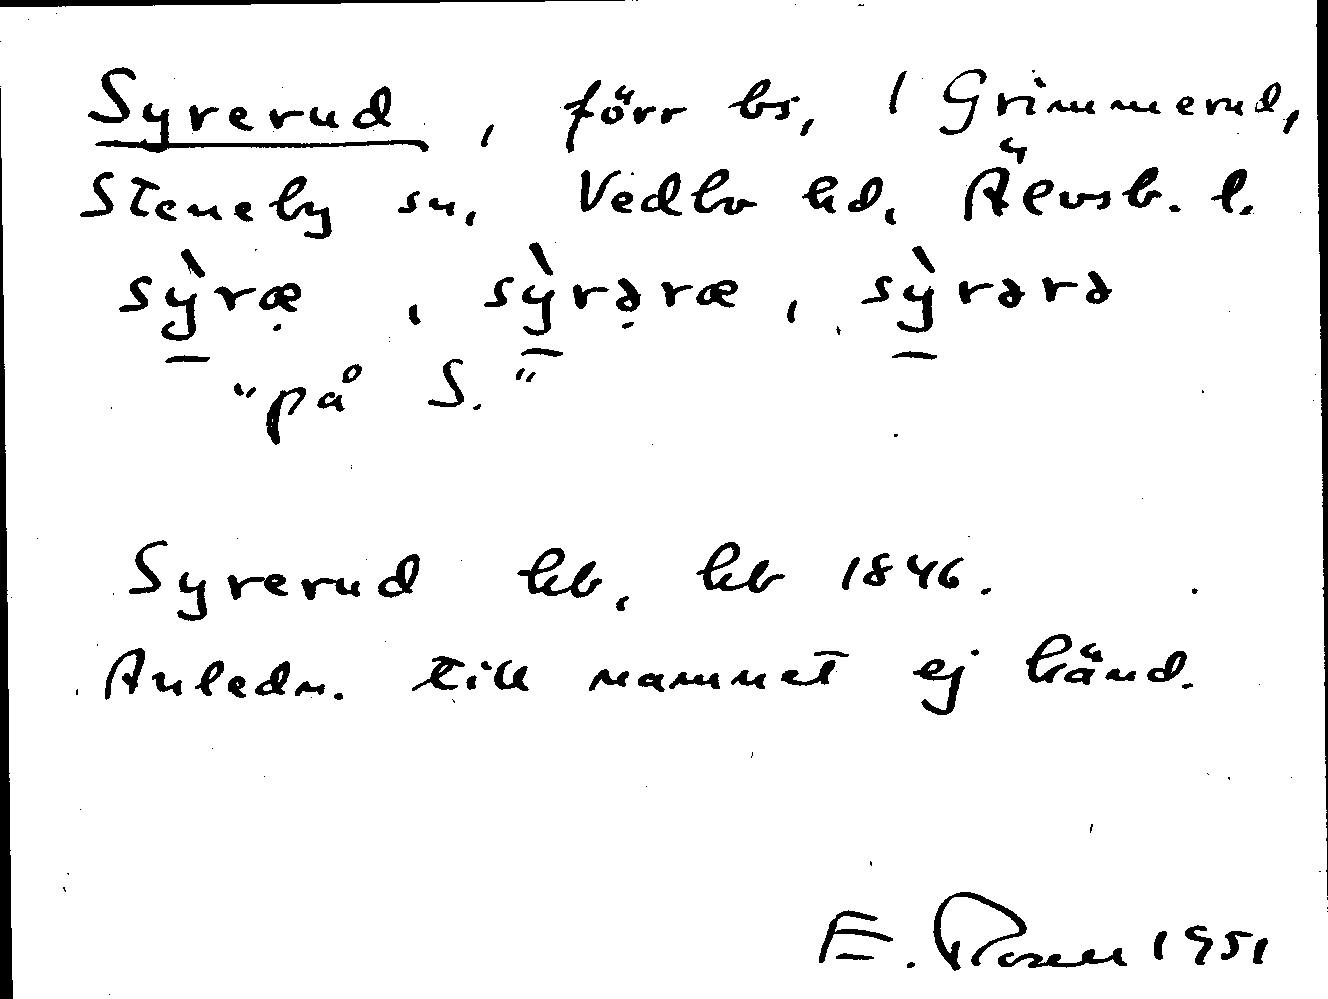 Syrerud, förr bs, / Grimmerud,
Steneby sn, Vedbo hd, Älvsb. l.
sỳræ̣, sỳrə̣ræ, sỳrərə
"på S."
Syrerud hb, kb 1846.
Anledn. till namnet ej känd.
E. Rosen 1951